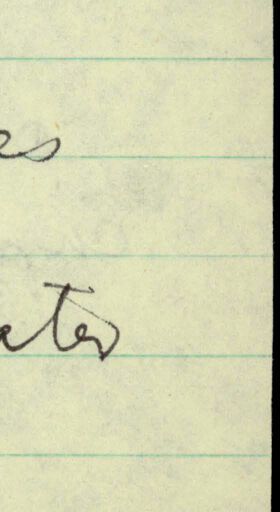 es
ates